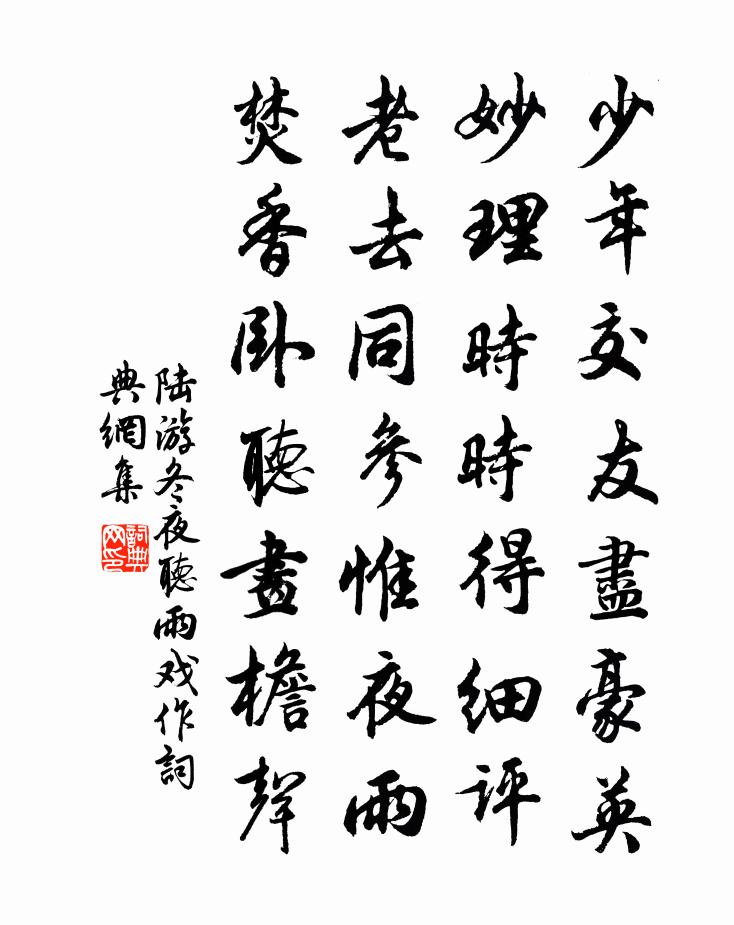 少年交友盡豪英
妙理時時得細評
老去同參惟夜雨
焚香卧聽畫檐聲
陆游冬夜聽雨戏作詞
典網集
詞典网印